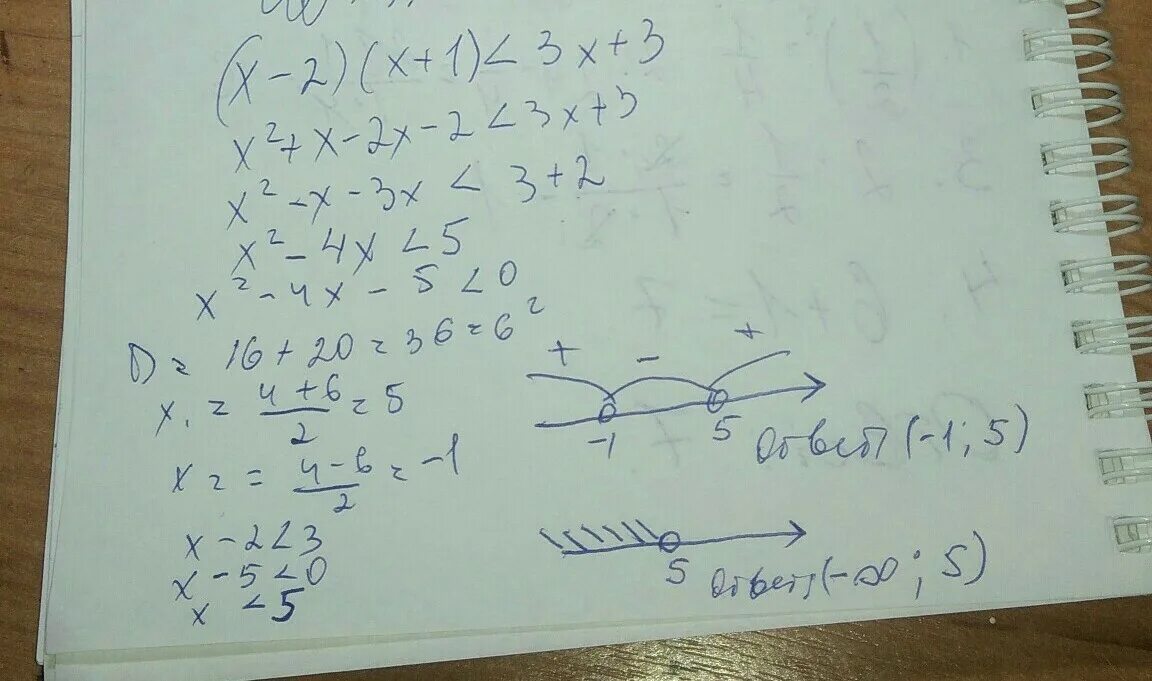 (x-2)(x+1)<3x+3
x²+x-2x-2<3x+3
x²-x-3x < 3+2
x²-4x<5
x²-4x-5<0
D= 16+20=36=6²
x₁ = 4+6/2 = 5
x₂ = 4-6/2 = -1
+ - +
-1 5 Ответ (-1; 5)
x-2<3
x-5<0
x <5
5 Ответ (-∞; 5)